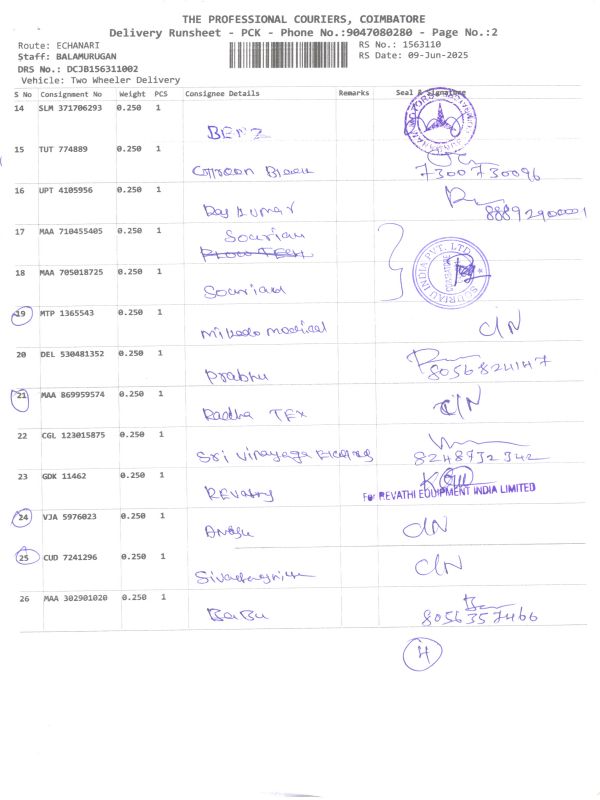 THE PROFESSIONAL COURIERS, COIMBATORE
Delivery Runsheet - PCK - Phone No.:9047080280 - Page No.:2
Route: ECHANARI
RS No.: 1563110
Staff: BALAMURUGAN
RS Date: 09-Jun-2025
DRS No.: DCJB156311002
Vehicle: Two Wheeler Delivery
S No Consignment No Weight PCS Consignee Details Remarks Seal & Signature
14 SLM 371706293 0.250 1
BENZ
15 TUT 774889 0.250 1
7300730096
16 UPT 4105956 0.250 1
Raj Kumar
17 MAA 710455405 0.250 1
Souriau
18 MAA 705018725 0.250 1
Souriau
SOURIAU INDIA PVT. LTD.
19 MTP 1365543 0.250 1
Mikado medical C/N
20 DEL 530481352 0.250 1
Prabhu 8056824147
21 MAA 869959574 0.250 1
Radha TEx C/N
22 CGL 123015875 0.250 1
Sri Vinayaga 8248732342
23 GDK 11462 0.250 1
Revathy For REVATHI EQUIPMENT INDIA LIMITED
24 VJA 5976023 0.250 1
C/N
25 CUD 7241296 0.250 1
C/N
26 MAA 302901020 0.250 1
BaBu 8056357466
4